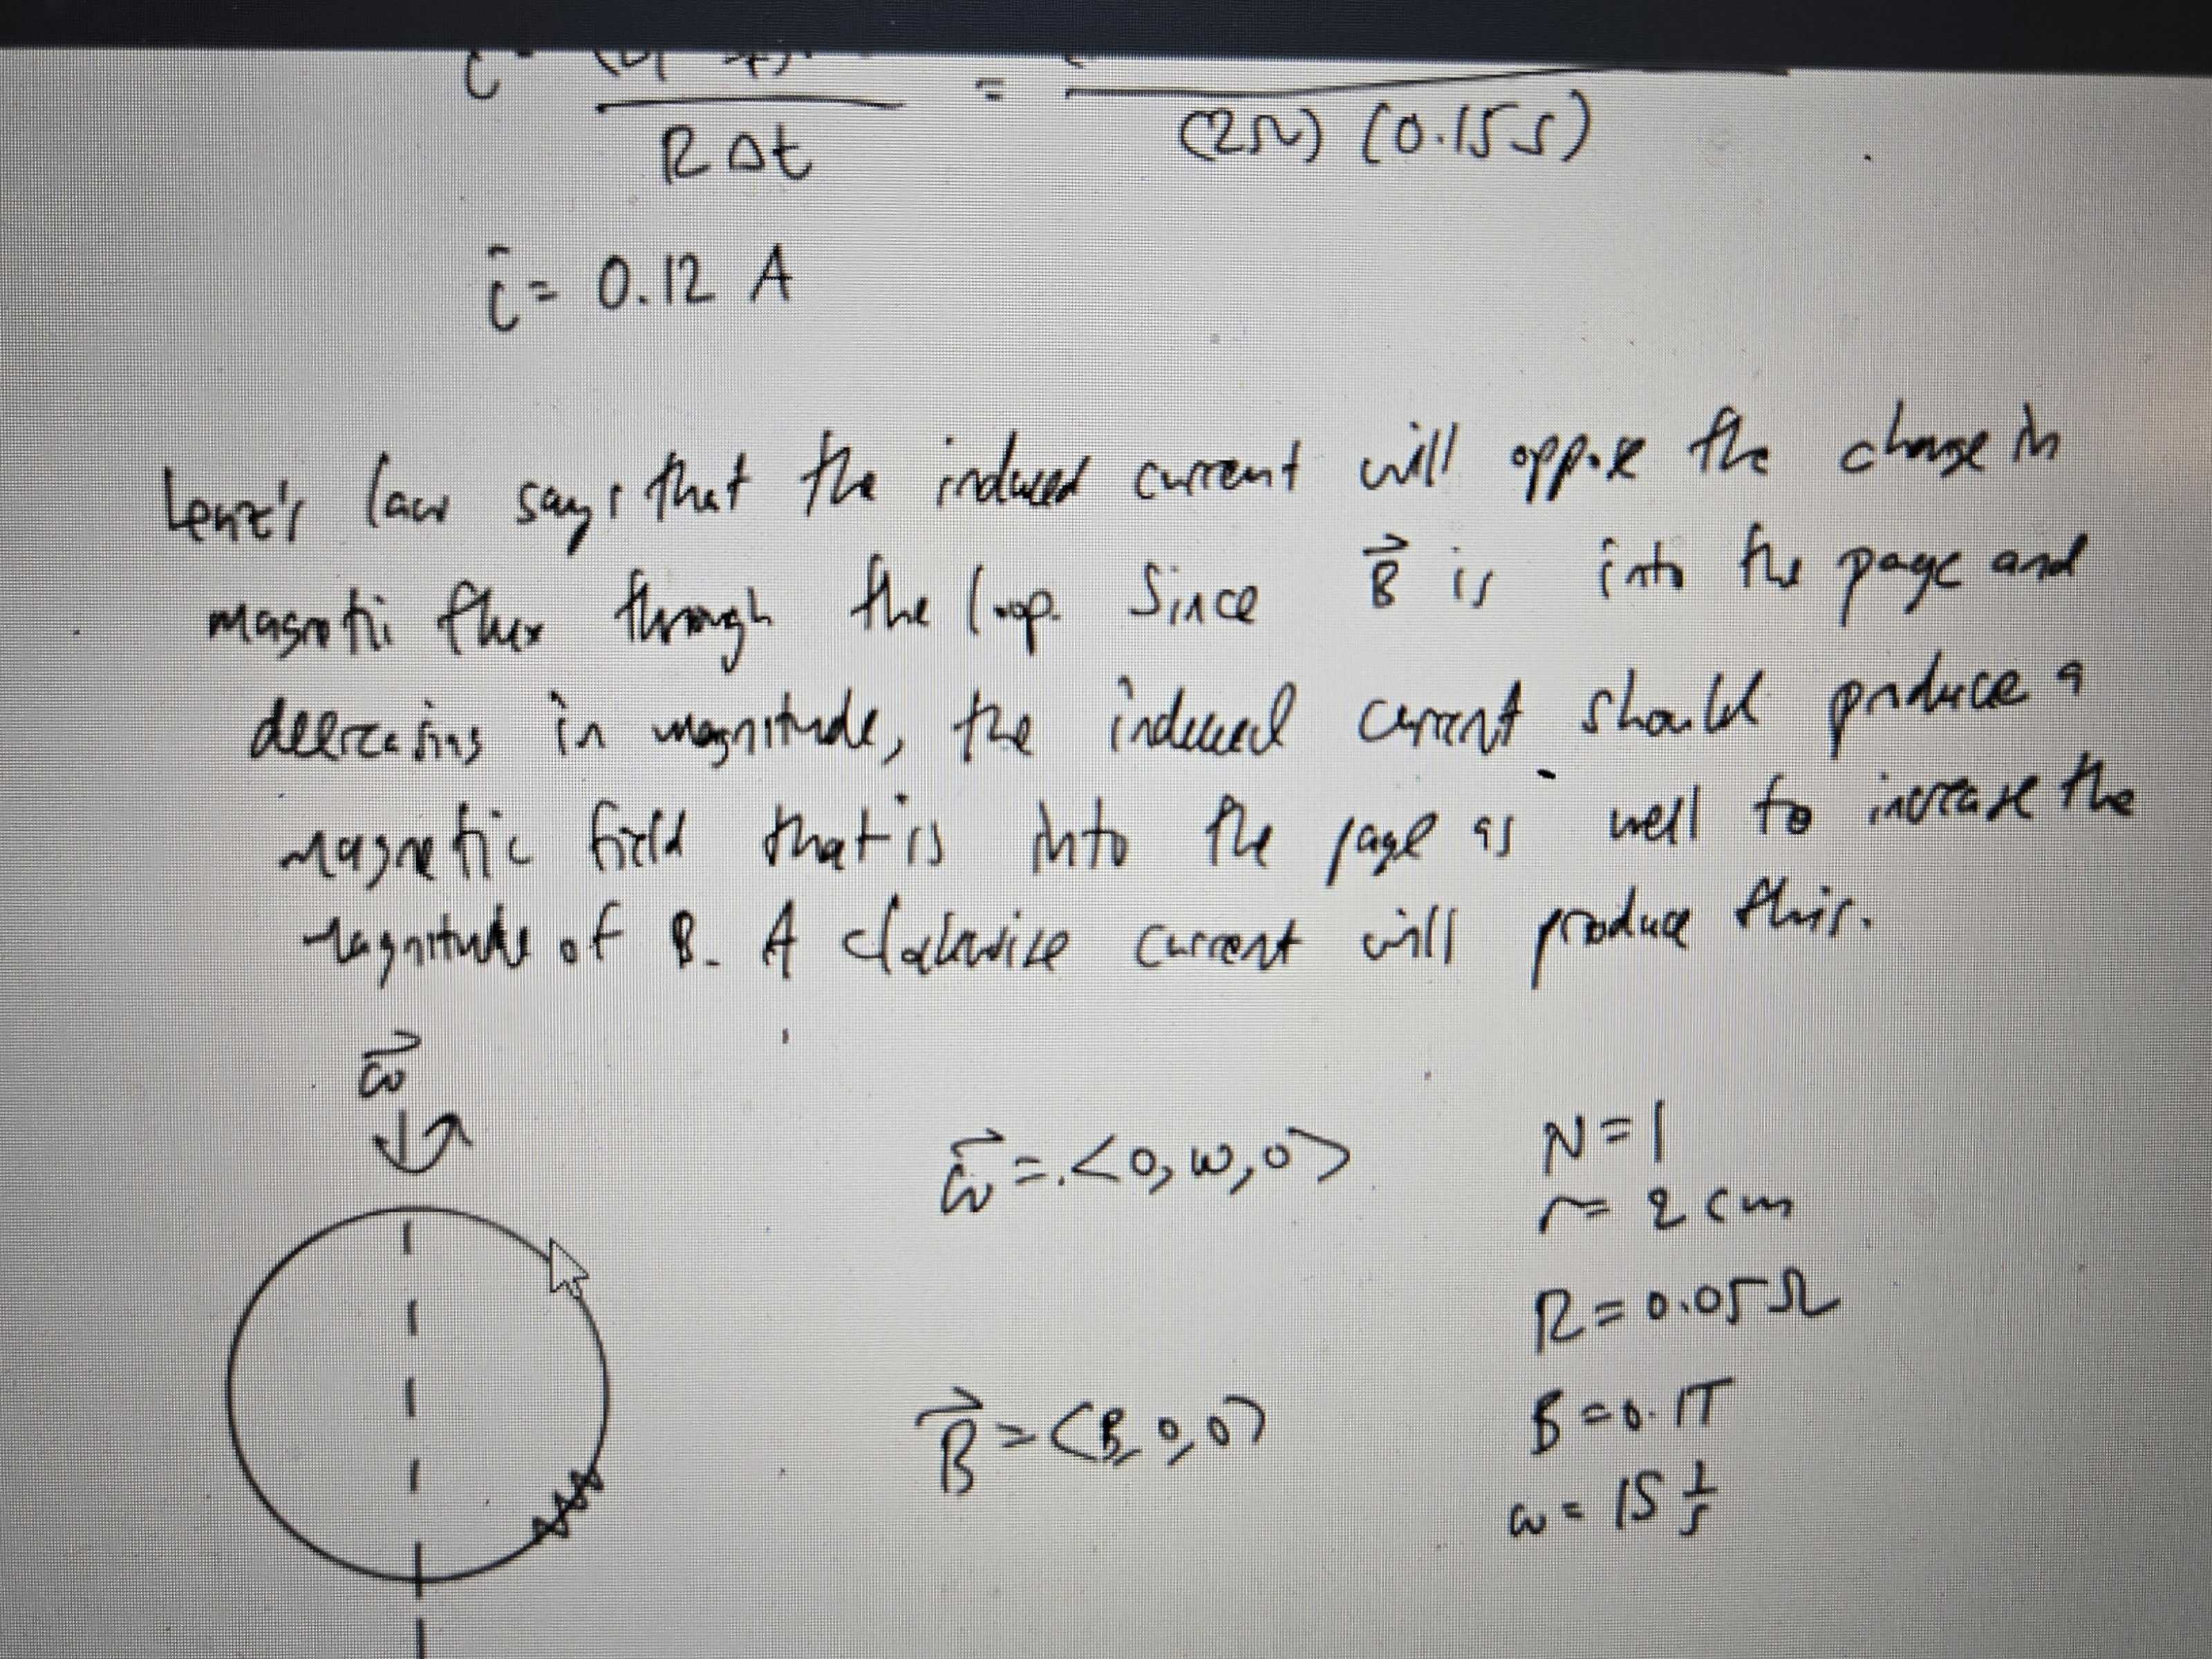 R Δt = (2Ω) (0.15 s)
i = 0.12 A
Lenz's law says that the induced current will oppose the change in
magnetic flux through the loop. Since B⃗ is into the page and
decreasing in magnitude, the induced current should produce a
magnetic field that is into the page as well to increase the
magnitude of B. A clockwise current will produce this.
ω⃗
ω⃗ = <0, ω, 0>
B⃗ = <B, 0, 0>
N = 1
r = 2 cm
R = 0.05 Ω
B = 0.1T
ω = 15 1/s